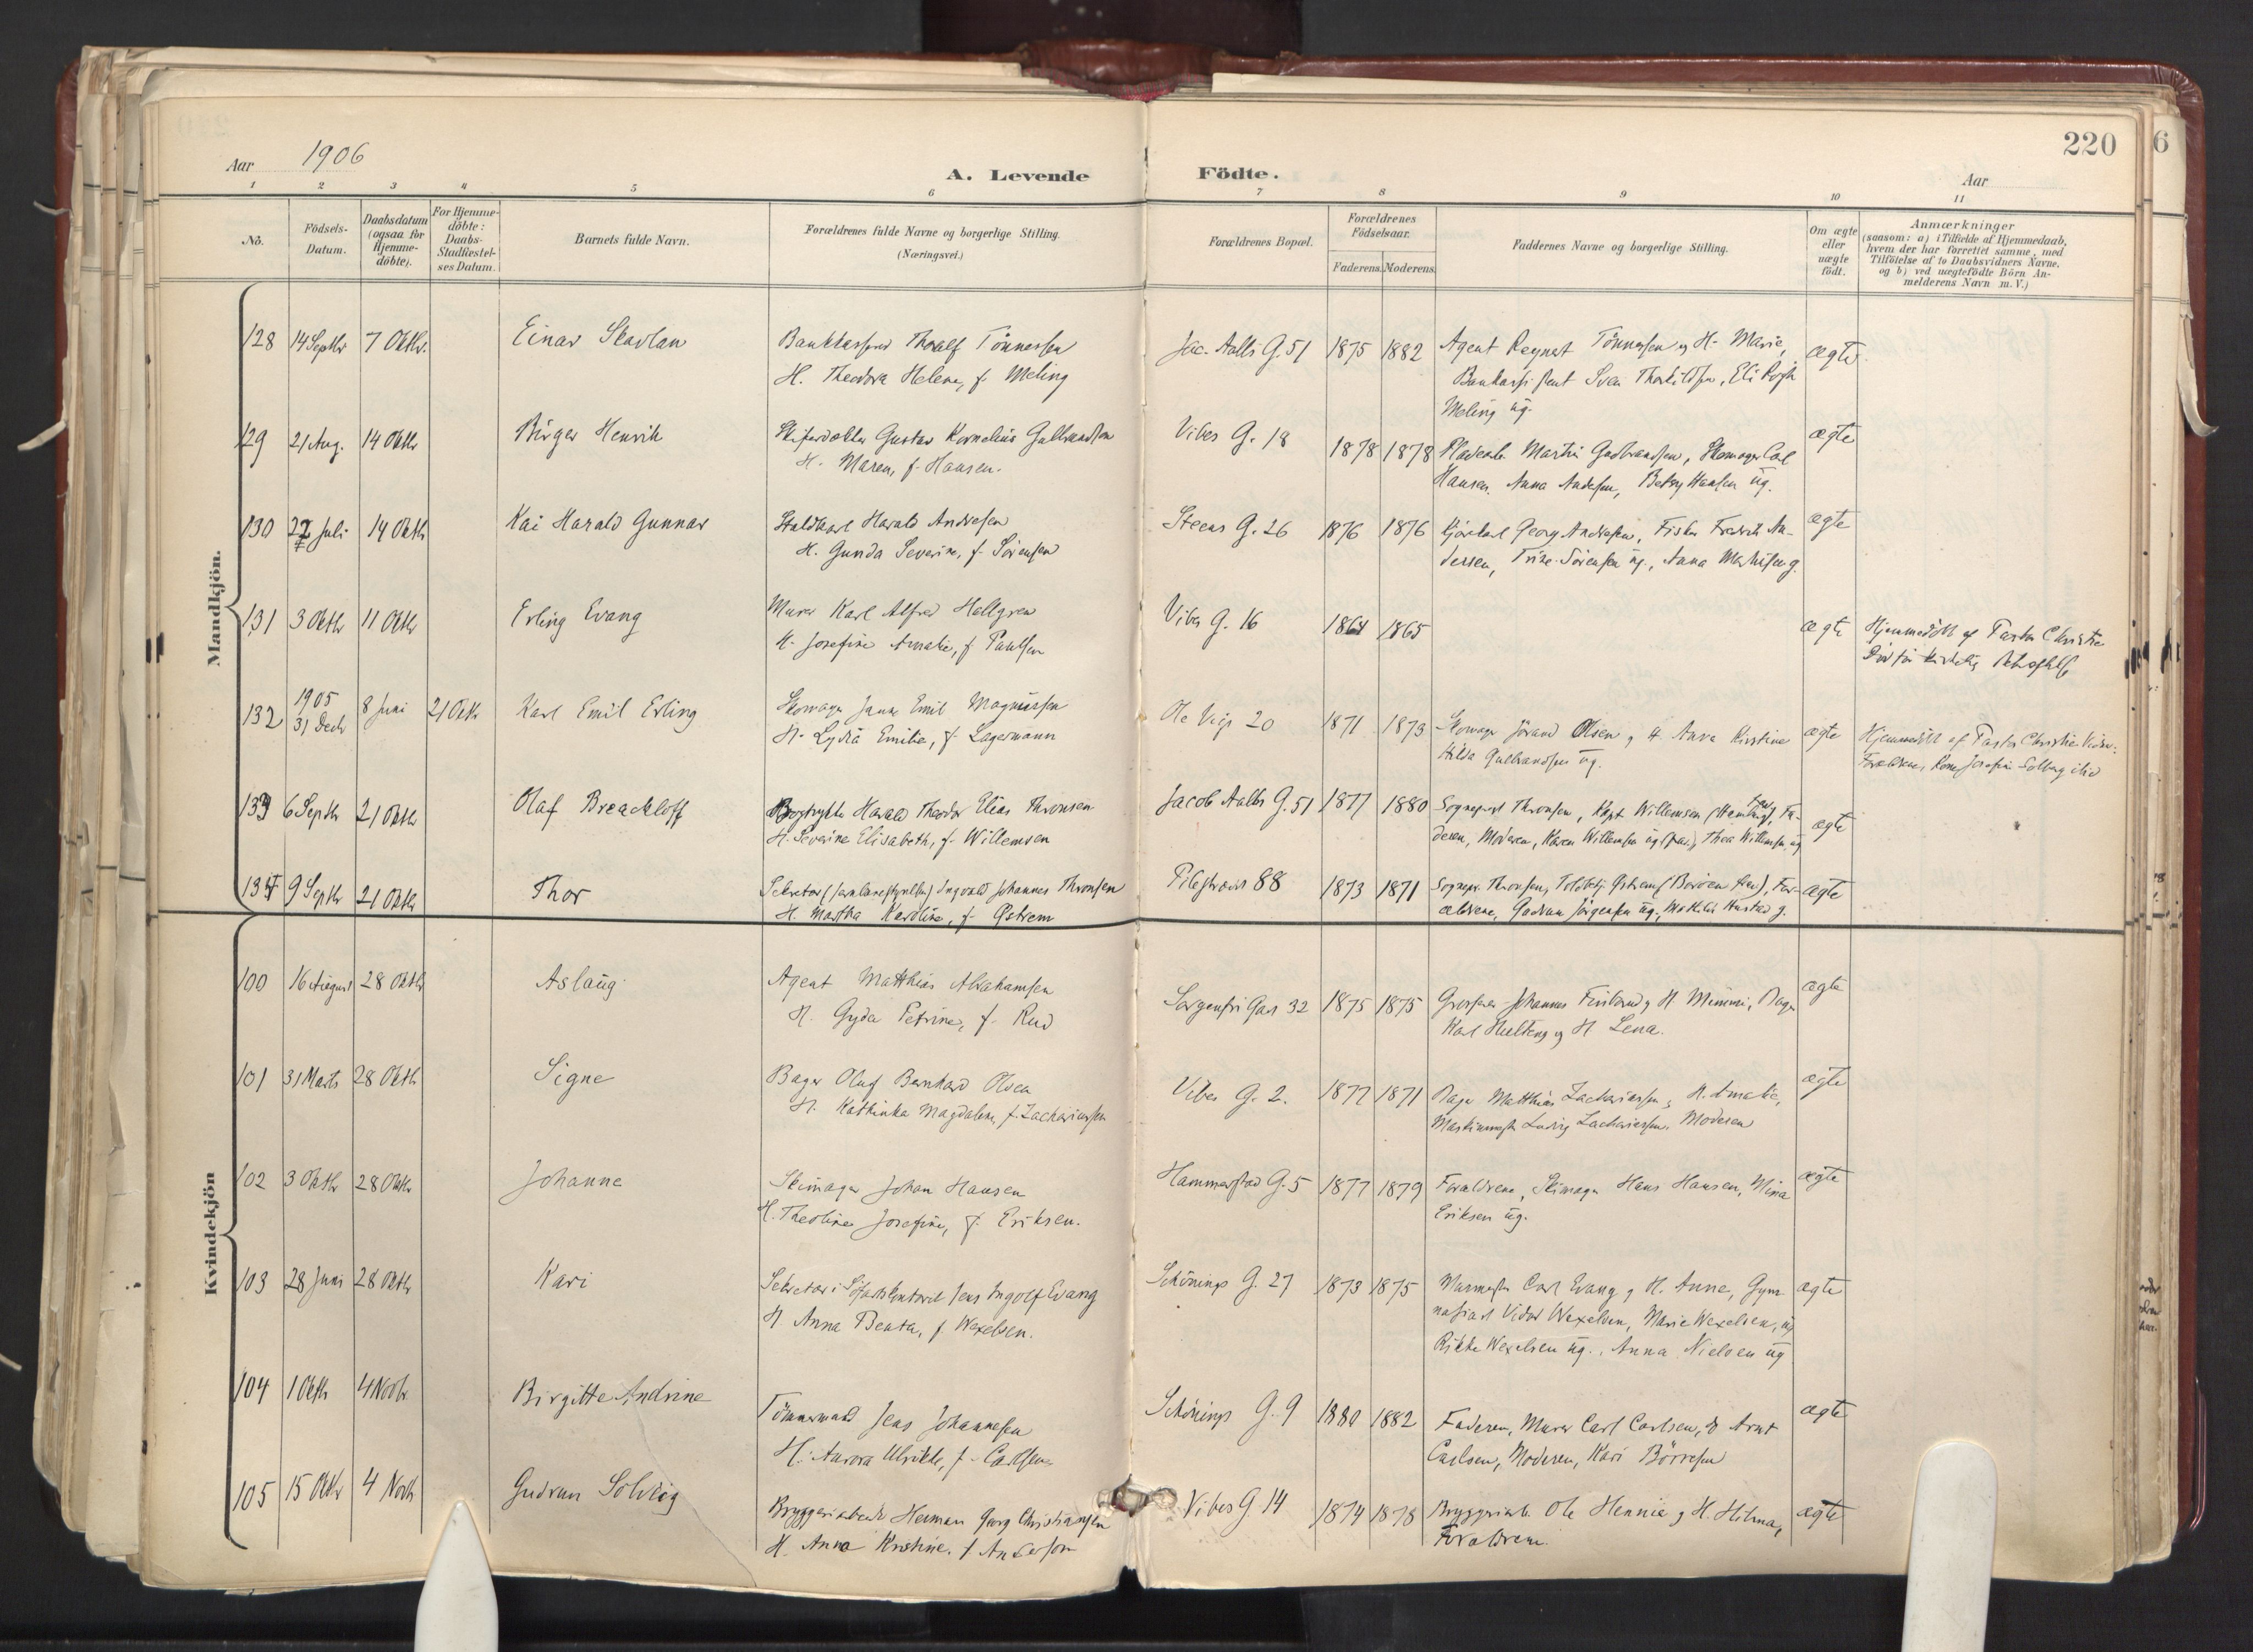 220
6
Aar 1906
A. Levende Födte.
Aar
1 2 3 4 5 6 7 8 9 10 11
Nò.
Födsels-Datum.
Daabsdatum (ogsaa for Hjemme-döbte).
For Hjemme-döbte: Daabs-Stadfæstel-ses Datum.
Barnets fulde Navn.
Forældrenes fulde Navne og borgerlige Stilling. (Næringsvei.)
Forældrenes Bopæl.
Forældrenes Födselsaar.
Faderens. Moderens.
Faddernes Navne og borgerlige Stilling.
Om ægte eller uægte födt.
Anmærkninger
(saasom: a) i Tilfælde af Hjemmedaab, hvem der har forrettet samme, med Tilföielse af to Daabsvidners Navne, og b) ved uægtefödte Börn An-melderens Navn m. V.)
Mandkjön.
128 14 Septbr 7 Oktbr. Einar Skavlan
Bankkasserer Thoralf Tönnessen
H. Theodora Helene, f. Meling
Jac. Aalls G. 51 1875 1882
Agent Regnert Tönnessen og H. Marie,
Bankassistent Sven Thorkildsen, Eli
Meling ug.
ægte
129 21 Aug. 14 Oktbr Birger Henrik
Gustav Kornelius Gulbrandsen
H. Maren, f. Hansen.
Vibes G. 18 1878 1878
Martin Gulbrandsen, Skomager Carl
Hansen, Anna Andersen, Betsy Hansen ug.
ægte
130 22 Juli 14 Oktbr Kai Harald Gunnar
Staldkarl Harald Andresen
H. Gunda Severine, f. Sörensen
Steens G. 26 1876 1876
Kjörekarl Georg Andresen, Fisker Fredrik An-
dersen, Trine Sörensen ug., Anna Mathisen g.
ægte
131 3 Oktbr 11 Oktbr Erling Evang
Murer Karl Alfred Hellgren
H. Josefine Amalie, f. Paulsen
Vibes G. 16 1864 1865
ægte
Hjemmedöbt af Pastor Christie
Död för kirkelig
132 1905 31 Decb 8 Juni 21 Oktr Karl Emil Erling
Skomager Emil Magnussen
H. Lydia Emilie, f. Lagermann
Ole Vigs 20 1871 1873
Skomager Olsen og H. Anna Kirstine
Hilda Gulbrandsen ug.
ægte
Hjemmedöbt af Pastor Christie Vidner:
Forældrene, Josefine Solberg
133 6 Septbr 21 Oktbr Olaf Breackloff
Bogtrykker Harald Theodor Elias Thronsen
H. Severine Elisabeth, f. Willemsen
Jacob Aalls G. 51 1877 1880
Sogneprest Thronsen, Kapt. Willemsen Fa-
deren, Moderen, Karen Willemsen ug, Thea Willemsen ug
ægte
134 9 Septbr 21 Oktbr Thor
Sekretær Ingvald Johannes Thronsen
H. Martha Karoline, f. Østrem
Pilestrædet 88 1873 1871
Sognepr. Thronsen, Toldbetj. Østrem, For-
ældrene, Gudrun Jörgensen ug., Mathilde Hustad g.
ægte
Kvindekjön
100 16 August 28 Oktbr Aslaug
Agent Matthias Abrahamsen
H. Gyda Petrine, f. Rud
Sorgenfri Gad 32 1875 1875
Grosserer Johannes og H Mimmi, Bager
Karl og H Lena.
ægte
101 31 Marts 28 Oktbr Signe
Bager Oluf Bernhard Olsen
H. Kathinka Magdalene, f. Zachariassen
Vibes G. 2. 1877 1871
Bager Matthias Zachariassen og H. Amalie,
Maskinmester Ludvig Zachariassen, Moderen
ægte
102 3 Oktbr 28 Oktbr Johanne
Skomager Johan Hansen
H. Theoline Josefine, f. Eriksen.
Hammerstad G. 5 1877 1879
Forældrene, Skomager Hans Hansen, Mina
Eriksen ug.
ægte
103 28 Juni 28 Oktbr Kari
Sekretær i Sjöfartskontoret Jens Ingolf Evang
H. Anna Beata, f. Wexelsen.
Schönings G. 27 1873 1875
Murmester Carl Evang og H. Anna, Gym-
nasiast Vidar Wexelsen, Marie Wexelsen, ug
Rikke Wexelsen ug., Anna Nielsen ug
ægte
104 1 Oktb 4 Novbr Birgitte Andrine
Tömmermand Jens Johannesen
H. Aurora Ulrikke, f. Carlsen
Schönings G. 9 1880 1882
Faderen, Murer Carl Carlsen, Arnt
Carlsen, Moderen, Kari Börresen
ægte
105 15 Oktbr 4 Novb Gudrun Solveig
Bryggeriarbeider Herman Georg Christiansen
H. Anna Kristine, f. Anderson
Vibes G. 14 1874 1878
Bryggeriarb. Ole Hennie og H. Hilma,
Forældrene.
ægte